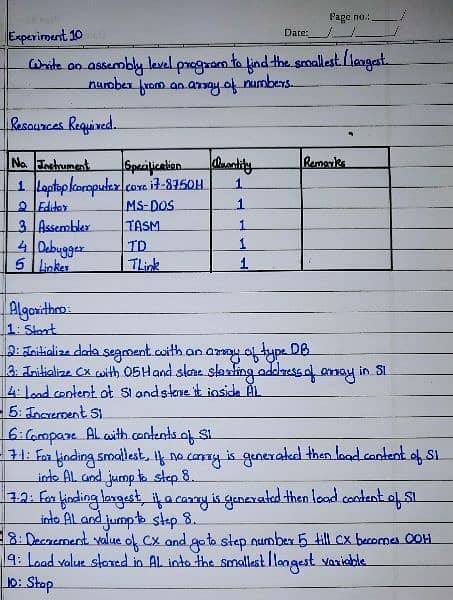 Page no.:
Experiment 10
Date:
Write an assembly level program to find the smallest / largest
number from an array of numbers.
Resources Required.
No. Instrument Specification Quantity Remarks
1 Laptop/computer core i7-8750H 1
2 Editor MS-DOS 1
3 Assembler TASM 1
4 Debugger TD 1
5 Linker TLink 1
Algorithm:
1: Start
2: Initialize data segment with an array of type DB
3: Initialize CX with 05H and store starting address of array in SI
4: Load content at SI and store it inside AL
5: Increment SI
6: Compare AL with contents of SI
7.1: For finding smallest, If no carry is generated then load content of SI
into AL and jump to step 8.
7.2: For finding largest, if a carry is generated then load content of SI
into AL and jump to step 8.
8: Decrement value of CX and go to step number 5 till CX becomes 00H
9: Load value stored in AL into the smallest / longest variable
10: Stop